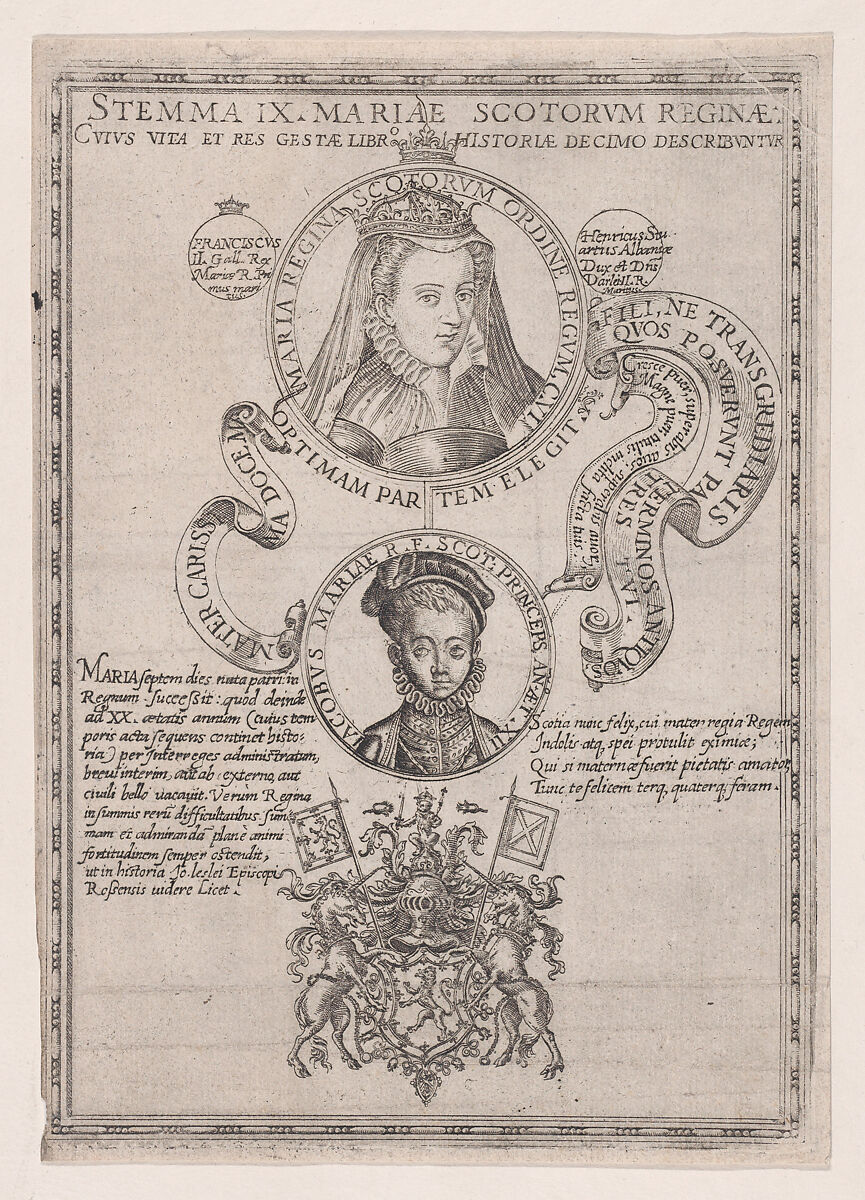 STEMMA IX. MARIAE SCOTORVM REGINÆ.
CVIVS VITA ET RES GESTÆ LIBRº HISTORIÆ DECIMO DESCRIBVNTVR
FRANCISCVS
II. Gall. Rex
Mariæ R. Pri
mus mari
tus.
MARIA REGINA SCOTORVM ORDINE REGVM. CVII
OPTIMAM PARTEM ELEGIT.
Henricus Stu
artus Albaniæ
Dux et Dns
Darlei II. R.
Maritus.
FILI, NE TRANSGREDIARIS
QVOS POSVERVNT PA
TERMINOS ANTIQVOS
TRES TVI
Cresce puer, superabis auos; superabis auorum
Magne puer
MATER CARISS
MA DOCE MA
IACOBVS MARIAE R. F. SCOT: PRINCEPS AN. ÆT. XII
MARIA septem dies nata patri in
Regnum successit: quod deinde
ad XX. ætatis annum (cuius tem
poris acta sequens continet histo-
ria) per Interreges administratum,
breui interim, aut ab externo, aut
ciuili bello vacauit. Verùm Regina
in summis rerū difficultatibus sum
mam et admirandā planè animi
fortitudinem semper ostendit,
ut in historia Jo. leslei Episcopi
Rossensis uidere Licet.
Scotia nunc felix, cui mater regia Regem
Indolis atq, spei protulit eximiæ;
Qui si maternæ fuerit pietatis amator,
Tunc te felicem terq, quaterq; feram.